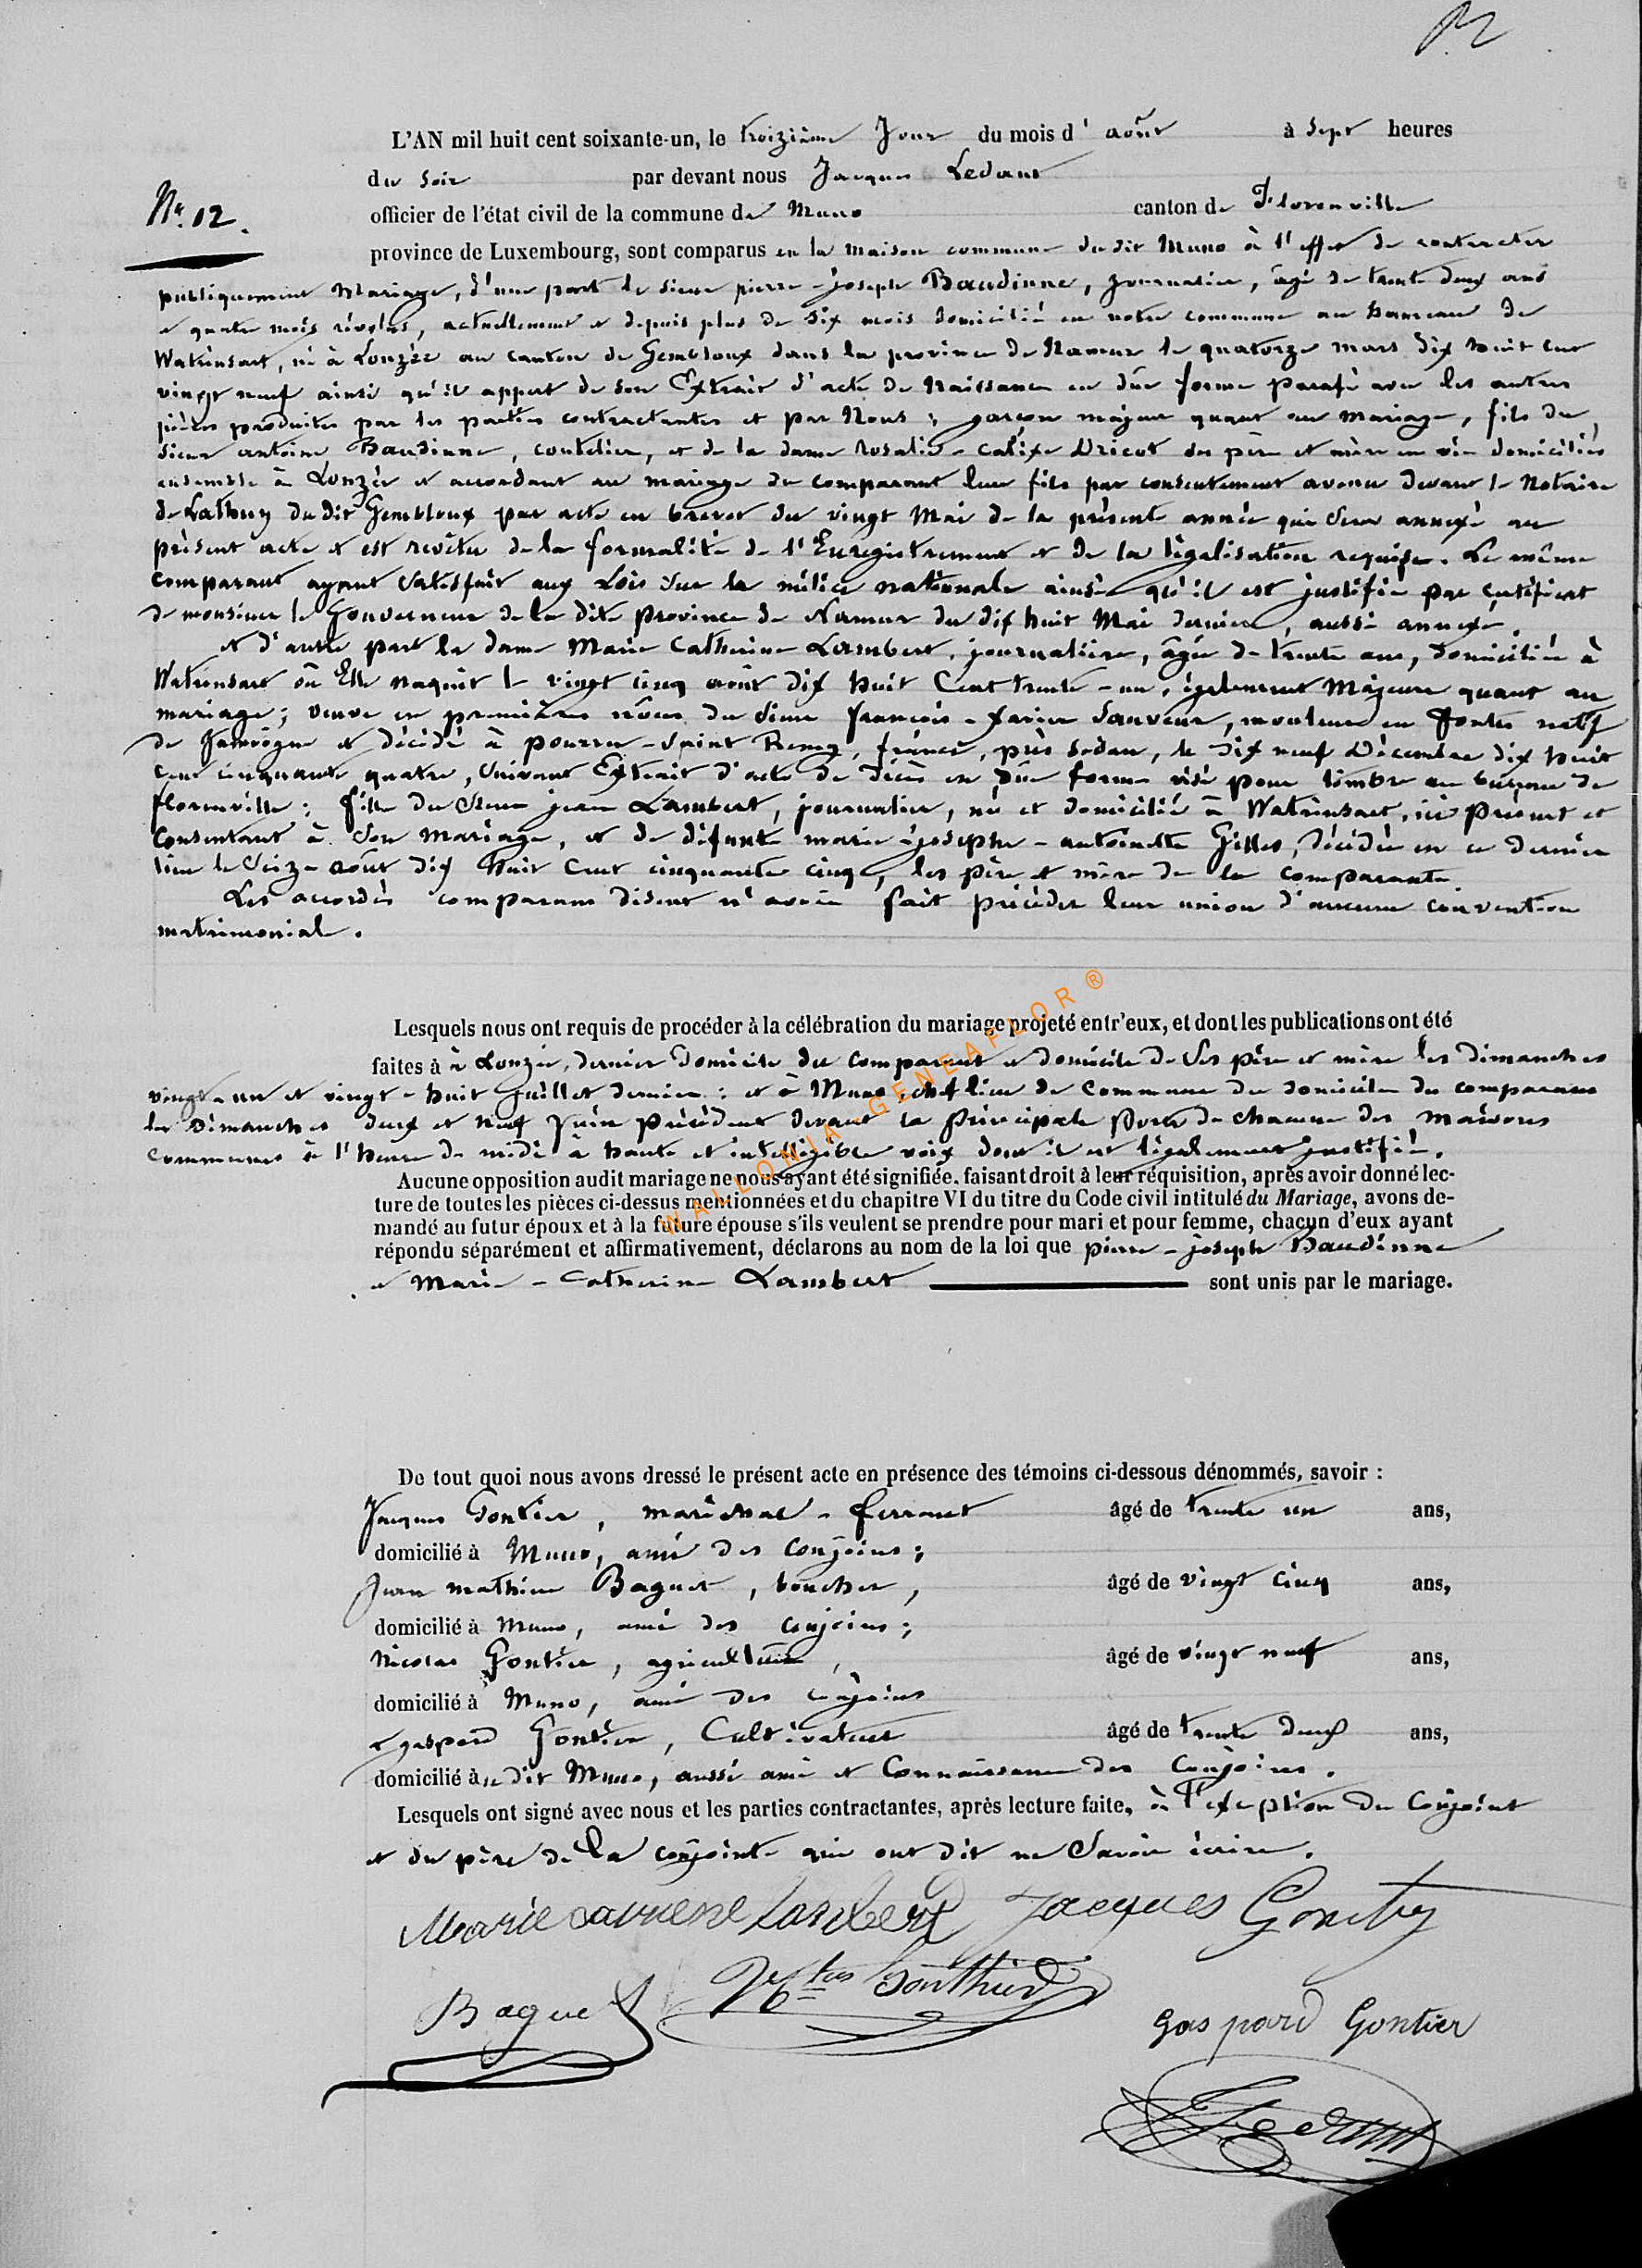 12
L'AN mil huit cent soixante-un, le troizième Jour du mois d' août à Sept heures
du soir par devant nous Jacques Ledant
Nº. 12.
officier de l'état civil de la commune de Muno canton de Florenville
province de Luxembourg, sont comparus en la maison commune du dit Muno à l'effet de contracter
publiquement Mariage, d'une part le sieur pierre-joseph Baudinne, journalier, âgé de trente deux ans
et quatre mois révolus, actuellement et depuis plus de six mois domicilié en notre commune au hameau de
Watrinsart, né à Lonzée au canton de Gembloux dans la province de Namur le quatorze mars dix huit cent
vingt neuf ainsi qu'il appert de son Extrait d'acte de Naissance en dûe forme parafé avec les autres
pièces produites par les parties contractantes et par Nous ; garçon majeur quant au mariage, fils du
Sieur antoine Baudinne, coutelier, et de la dame rosalie-calixe Dricot ses père et mère en vie domiciliés
ensemble à Lonzée et accordant au mariage du comparant leur fils par consentement avenu devant le Notaire
de Lathuy du dit Gembloux par acte en brevet du vingt Mai de la présente année qui sera annexé au
présent acte et est revêtu de la formalité de l'Enregistrement et de la légalisation requise. Le même
comparant ayant satisfait aux Lois sur la milice nationale ainsi qu'il est justifié par certificat
de monsieur le Gouverneur de la dite province de Namur du dix huit Mai dernier, aussi annexé.
et d'autre part la dame Marie Catherine Lambert, journalière, âgée de trente ans, domiciliée à
Watrinsart où Elle naquit le vingt cinq août dix huit Cent trente-un, également Majeure quant au
mariage ; veuve en premières nôces du Sieur françois-xavier Sauveur, mouleur en fontes natif
de Jamoigne et décédé à pourru-Saint Remy, france, près Sedan, le dix neuf Décembre dix huit
cent cinquante quatre, Suivant Extrait d'acte de décès en dûe forme visé pour timbre au bureau de
florenville ; fille du Sieur jean Lambert, journalier, né et domicilié à Watrinsart, ici présent et
Consentant à son mariage, et de défunte marie-josephe-antoinette Gilles, décédée en ce dernier
lieu le Seize août dix huit Cent cinquante cinq, les père et mère de la comparante.
Les accordés comparans disent n'avoir fait précéder leur union d'aucune convention
matrimonial.
Lesquels nous ont requis de procéder à la célébration du mariage projeté entr'eux, et dont les publications ont été
faites à à Lonzée, dernier domicile du comparant et domicile de Ses père et mère les dimanches
vingt-un et vingt-huit Juillet dernier ; et à Muno, chef lieu de Commune du domicile des comparans
les Dimanches deux et neuf Juin précédent devant la principale porte de chacune des maisons
communes à l'heure de midi à haute et intelligible voix dont il est légalement justifié.
WALLONIA-GENEAFLOR®
Aucune opposition audit mariage ne nous ayant été signifiée, faisant droit à leur réquisition, après avoir donné lec-
ture de toutes les pièces ci-dessus mentionnées et du chapitre VI du titre du Code civil intitulé du Mariage, avons de-
mandé au futur époux et à la future épouse s'ils veulent se prendre pour mari et pour femme, chacun d'eux ayant
répondu séparément et affirmativement, déclarons au nom de la loi que pierre-joseph Baudinne
et Marie-Catherine Lambert sont unis par le mariage.
De tout quoi nous avons dressé le présent acte en présence des témoins ci-dessous dénommés, savoir :
Jacques Gontier, maréchal-ferrant âgé de trente un ans,
domicilié à Muno, ami des conjoins ;
Jean mathieu Baguet, boucher, âgé de vingt cinq ans,
domicilié à Muno, ami des conjoins ;
Nicolas Gontier, agriculteur, âgé de vingt neuf ans,
domicilié à Muno, ami des conjoins
et gaspard Gontier, Cultivateur âgé de trente deux ans,
domicilié au dit Muno, aussi ami et Connaissance des Conjoins.
Lesquels ont signé avec nous et les parties contractantes, après lecture faite, à l'exeption du Conjoint
et du père de la conjointe qui ont dit ne Savoir écrire.
Jacques Gontier
Baguet
Gonthier
gaspard Gontier
Ledant